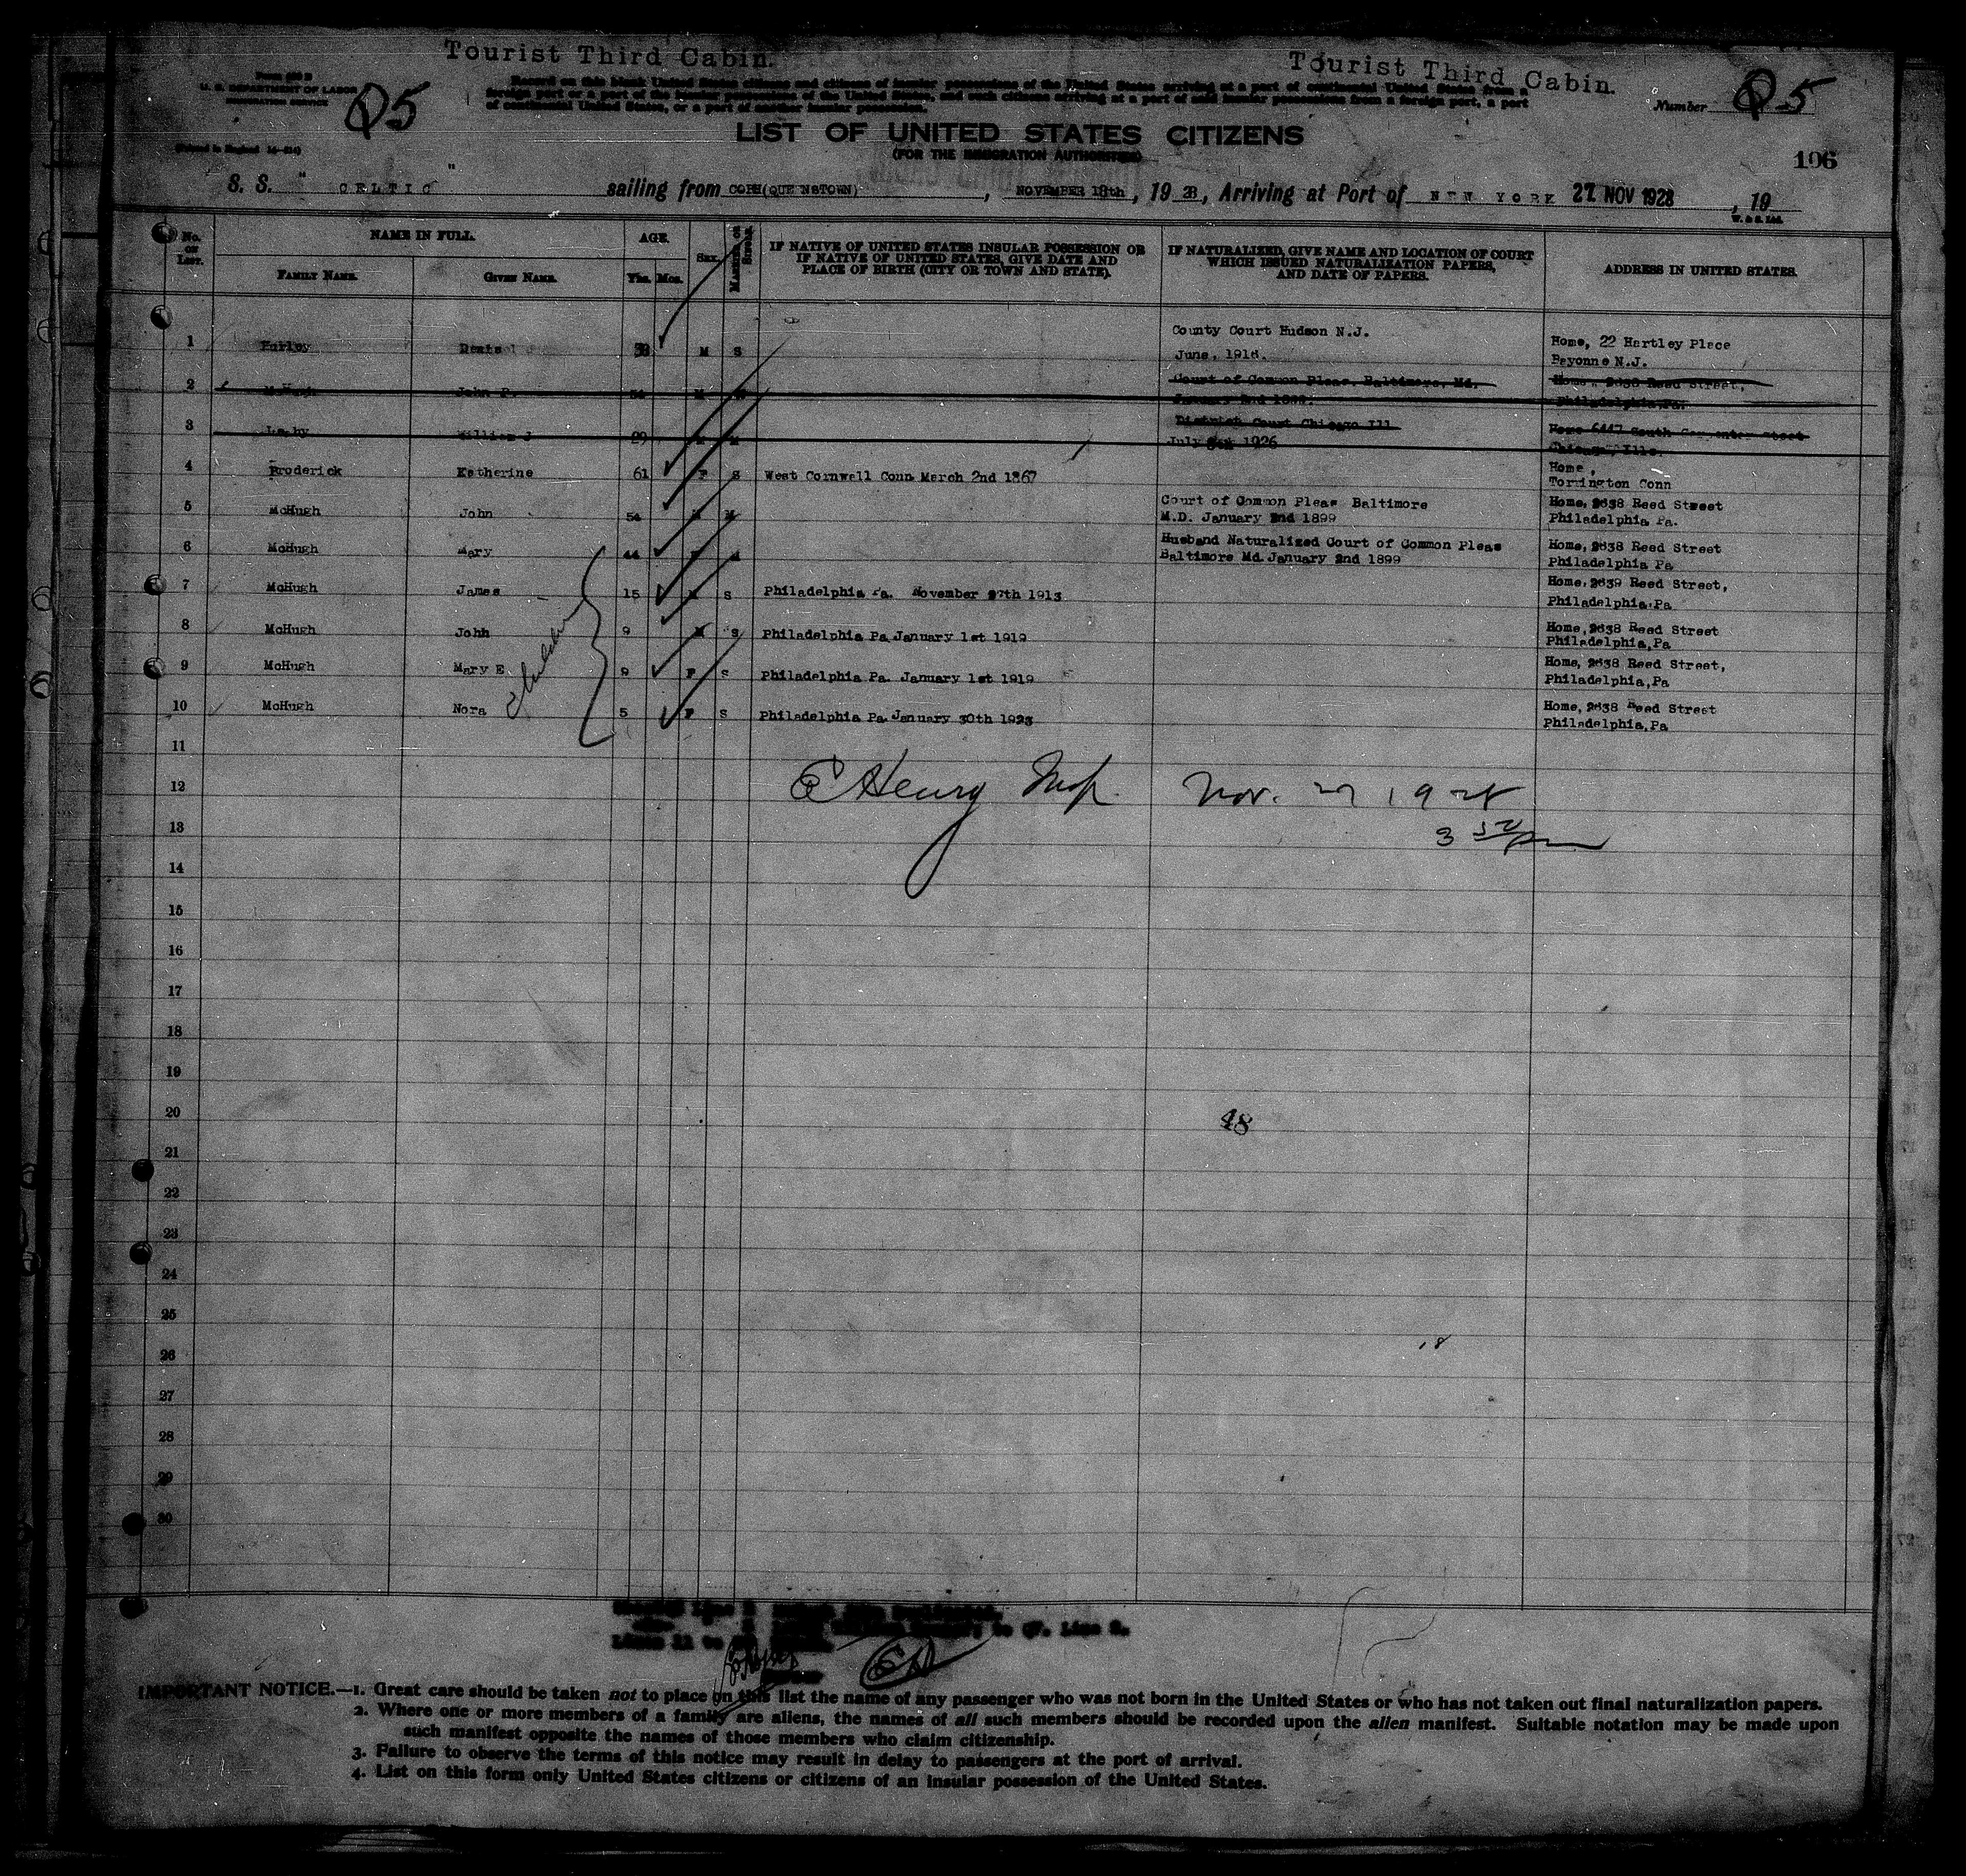 Tourist Third Cabin.
Tourist Third Cabin.
U. S. DEPARTMENT OF LABOR
IMMIGRATION SERVICE
Q5
Record on this blank United States citizens and citizens of insular possessions of the United States arriving at a port of continental United States from a
foreign port or a port of the insular possessions of the United States, and such citizens arriving at a port of said insular possessions from a foreign port, a port
of continental United States, or a port of another insular possession.
Number Q-5
LIST OF UNITED STATES CITIZENS
(FOR THE IMMIGRATION AUTHORITIES)
106
S. S. " CELTIC " sailing from COBH(QUE NSTOWN), NOVEMBER 18th, 19 28, Arriving at Port of NEW YORK 27 NOV 1928, 19
No. on List.
NAME IN FULL.
AGE.
Sex.
Married or Single.
IF NATIVE OF UNITED STATES INSULAR POSSESSION OR
IF NATIVE OF UNITED STATES, GIVE DATE AND
PLACE OF BIRTH (CITY OR TOWN AND STATE).
IF NATURALIZED, GIVE NAME AND LOCATION OF COURT
WHICH ISSUED NATURALIZATION PAPERS,
AND DATE OF PAPERS.
ADDRESS IN UNITED STATES.
Family Name. Given Name. Yrs. Mos.
1 Hurley Denis M S County Court Hudson N.J. Home, 22 Hartley Place
June, 1918. Bayonne N.J.
2 McHugh John P. 54 M M Court of Common Pleas, Baltimore, Md. Home, 2638 Reed Street,
January 2nd 1899. Philadelphia, Pa.
3 William J 29 M M District Court Chicago Ill Home 6447 South Carpenter Street
July 1926 Chicago, Ills.
4 Broderick Katherine 61 F S West Cornwell Conn March 2nd 1867 Home,
Torrington Conn
5 McHugh John 54 M M Court of Common Pleas Baltimore Home, 2638 Reed Street
M.D. January 2nd 1899 Philadelphia Pa.
6 McHugh Mary 44 F M Husband Naturalized Court of Common Pleas Home, 2638 Reed Street
Baltimore Md January 2nd 1899 Philadelphia Pa
7 McHugh James 15 M S Philadelphia Pa. November 27th 1913 Home, 2639 Reed Street,
Philadelphia, Pa
8 McHugh John 9 M S Philadelphia Pa January 1st 1919 Home, 2638 Reed Street
Philadelphia, Pa
9 McHugh Mary E 9 F S Philadelphia Pa. January 1st 1919 Home, 2638 Reed Street,
Philadelphia, Pa
10 McHugh Nora 5 F S Philadelphia Pa January 30th 1923 Home, 2638 Reed Street
Philadelphia, Pa
children
11
12 Henry Insp. Nov. 27 1928
13 3 50 pm
14
15
16
17
18
19
20
48
21
22
23
24
25
26
27
28
29
30
IMPORTANT NOTICE.—1. Great care should be taken not to place on this list the name of any passenger who was not born in the United States or who has not taken out final naturalization papers.
2. Where one or more members of a family are aliens, the names of all such members should be recorded upon the alien manifest. Suitable notation may be made upon
such manifest opposite the names of those members who claim citizenship.
3. Failure to observe the terms of this notice may result in delay to passengers at the port of arrival.
4. List on this form only United States citizens or citizens of an insular possession of the United States.